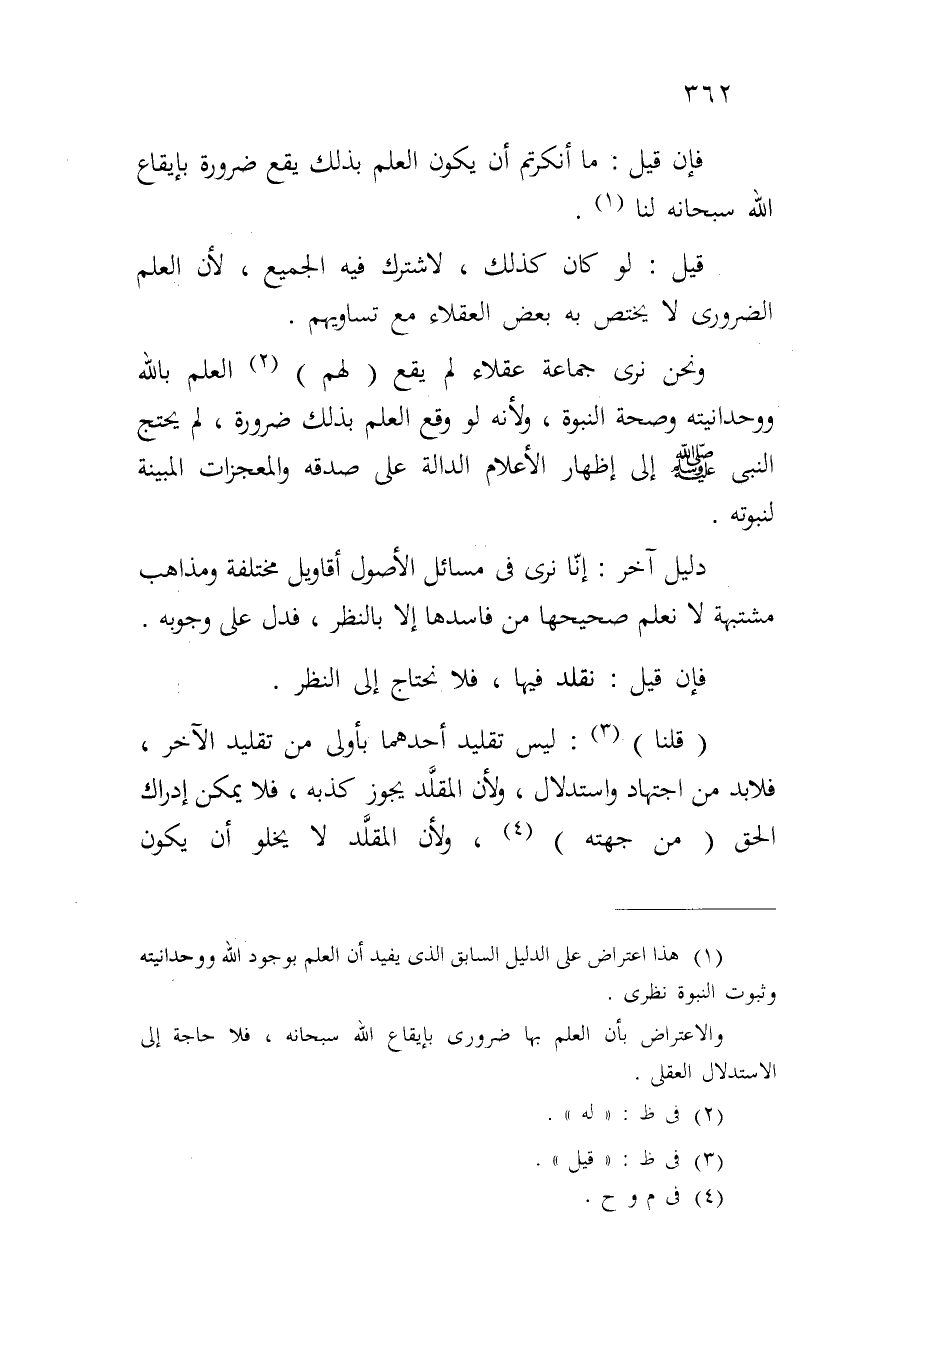 ٣٦٢
فإن قيل : ما أنكرتم أن يكون العلم بذلك يقع ضرورة بإيقاع
الله سبحانه لنا (١) .
قيل : لو كان كذلك ، لاشترك فيه الجميع ، لأن العلم
الضرورى لا يختص به بعض العقلاء مع تساويهم .
ونحن نرى جماعة عقلاء لم يقع ( لهم ) (٢) العلم بالله
ووحدانيته وصحة النبوة ، ولأنه لو وقع العلم بذلك ضرورة ، لم يحتج
النبى ﷺ إلى إظهار الأعلام الدالة على صدقه والمعجزات المبينة
لنبوته .
دليل آخر : إنّا نرى فى مسائل الأصول أقاويل مختلفة ومذاهب
مشتبهة لا نعلم صحيحها من فاسدها إلا بالنظر ، فدل على وجوبه .
فإن قيل : نقلد فيها ، فلا نحتاج إلى النظر .
( قلنا ) (٣) : ليس تقليد أحدهما بأولى من تقليد الآخر ،
فلابد من اجتهاد واستدلال ، ولأن المقلَّد يجوز كذبه ، فلا يمكن إدراك
الحق ( من جهته ) (٤) ، ولأن المقلَّد لا يخلو أن يكون
(١) هذا اعتراض على الدليل السابق الذى يفيد أن العلم بوجود الله ووحدانيته
وثبوت النبوة نظرى .
والاعتراض بأن العلم بها ضرورى بإيقاع الله سبحانه ، فلا حاجة إلى
الاستدلال العقلى .
(٢) فى ظ : « له » .
(٣) فى ظ : « قيل » .
(٤) فى م و ح .